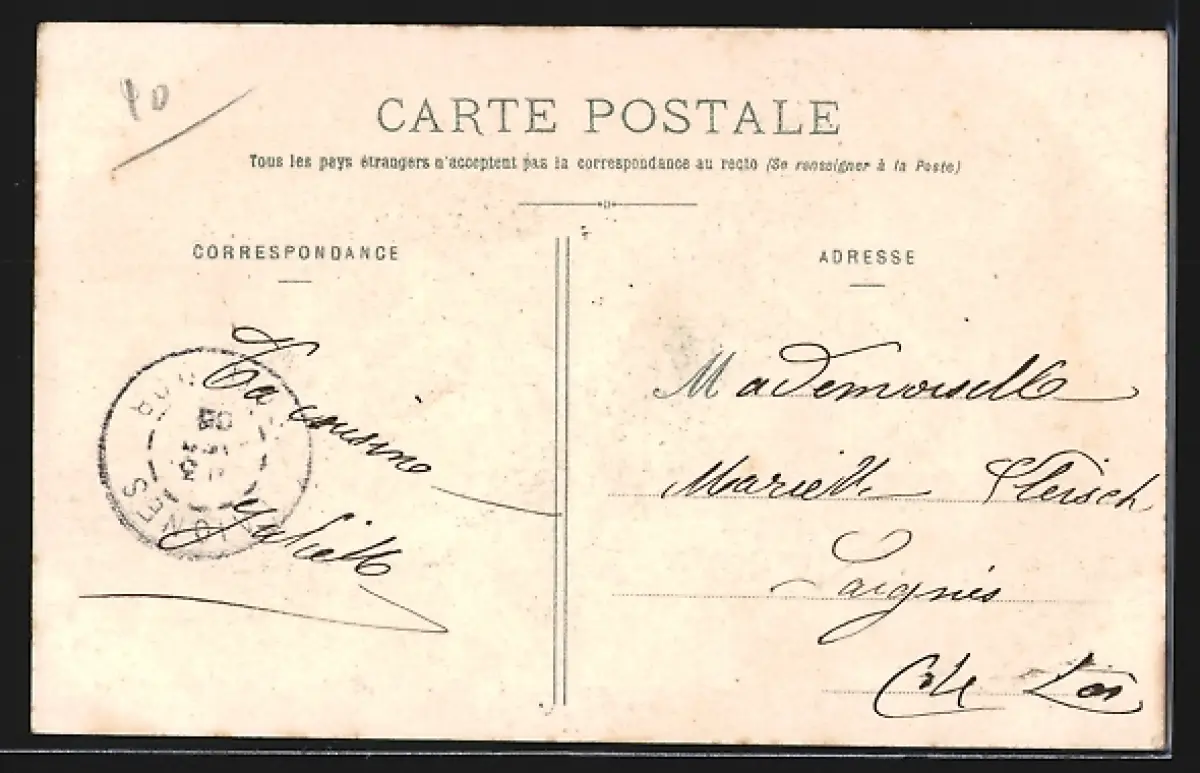 40
CARTE POSTALE
Tous les pays étrangers n'acceptent pas la correspondance au recto (Se renseigner à la Poste)
CORRESPONDANCE
ADRESSE
Ta cousine
Mademoiselle
Mariette Fleisch
Laignes
Côte d'Or